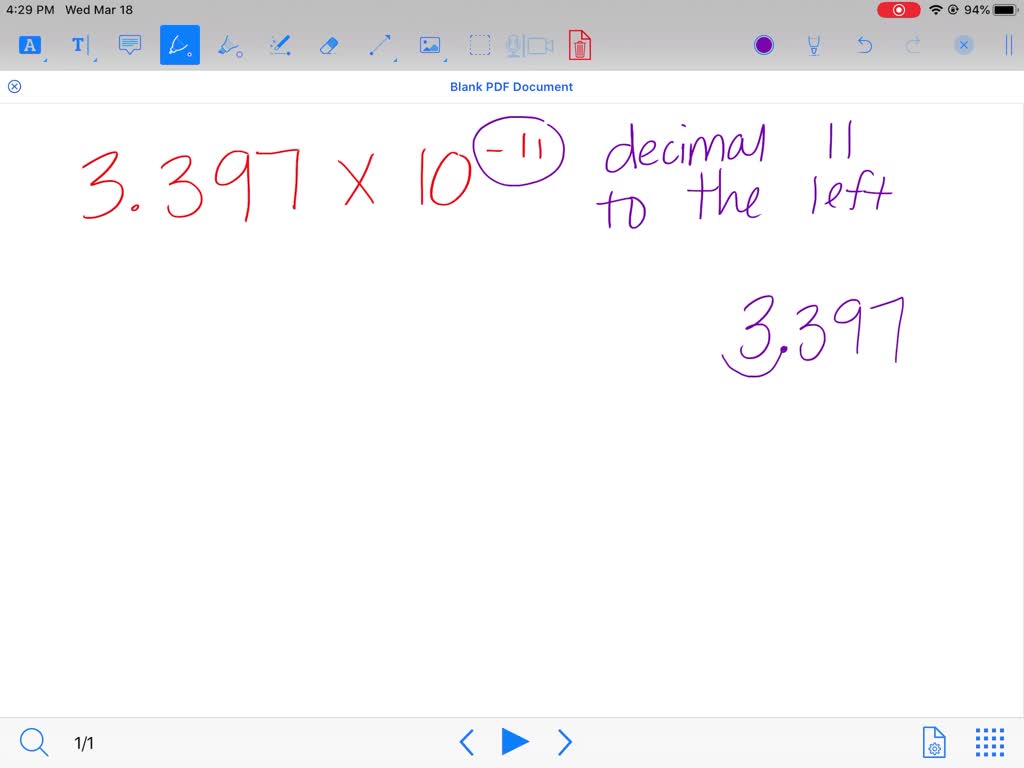 4:29 PM Wed Mar 18 94%
A T
Blank PDF Document
3.397 x 10^-11 decimal 11
to the left
3.397
1/1